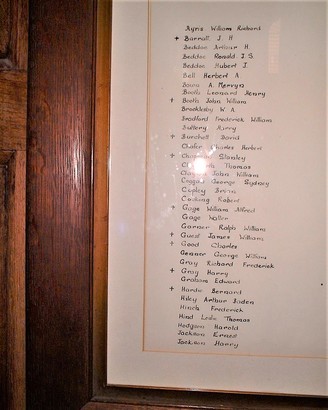 Ayris William Richard
+ Barnatt J. H
Beddoe Arthur H.
Beddoe Ronald J.S.
Beddoe Hubert J.
Bell Herbert A.
Boone A. Mervyn
Booth Leonard Henry
+ Booth John William
Brocklesby W. A.
Bradford Frederick William
Buttery Harry
+ Burchell David
Chafer Charles Herbert
+ Stanley
Thomas
John William
George Sydney
Copley Brian
Cocking Robert
+ Gage William Alfred
Gage Walter
Garner Ralph William
+ Guest James William
+ Good Charles
George William
Gray Richard Frederick
+ Gray Harry
Graham Edward
+ Hardie Bernard
Hiley Arthur Baden
Hinch Frederick
Hind Leslie Thomas
Hodgson Harold
Jackson Ernest
Jackson Harry